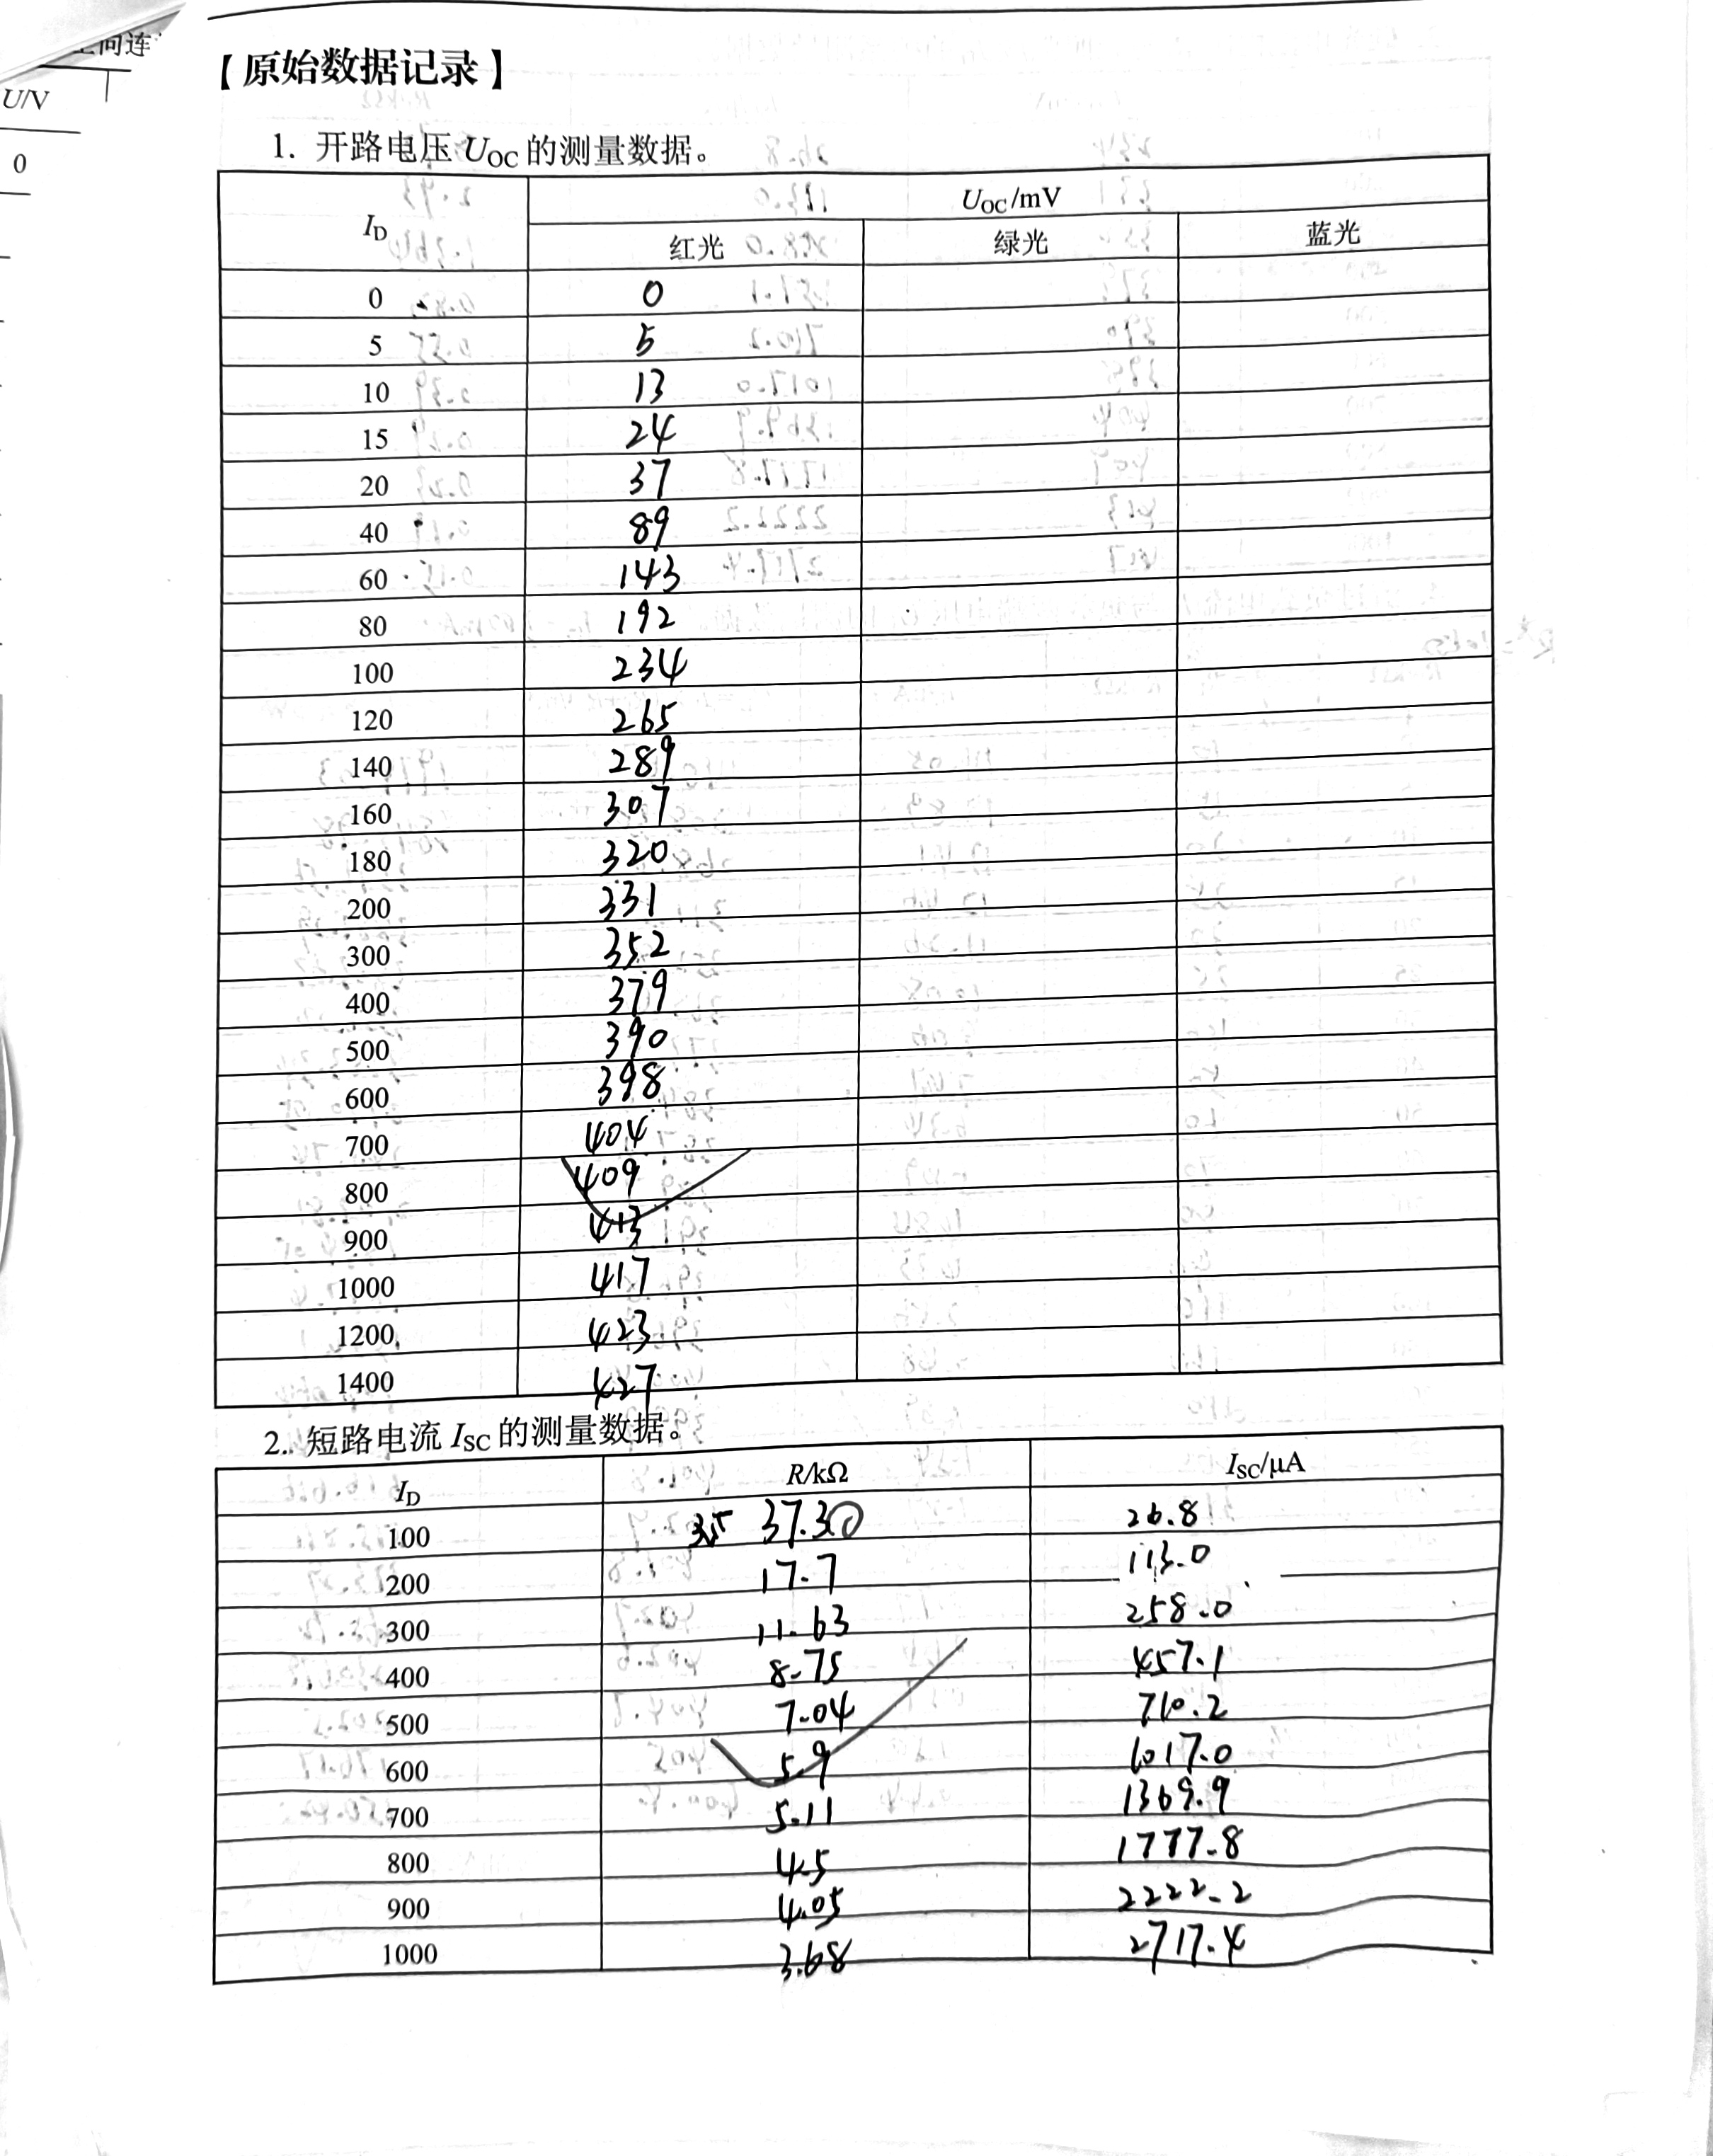 上向连
U/V
0
【原始数据记录】
1. 开路电压 UOC 的测量数据。
ID UOC/mV
红光 绿光 蓝光
0 0
5 5
10 13
15 24
20 37
40 89
60 143
80 192
100 234
120 265
140 289
160 307
180 320
200 331
300 352
400 379
500 390
600 398
700 404
800 409
900 413
1000 417
1200 423
1400 427
2. 短路电流 ISC 的测量数据。
ID R/kΩ ISC/μA
100 37.3 26.8
200 17.7 113.0
300 11.63 258.0
400 8.75 457.1
500 7.04 710.2
600 5.9 1017.0
700 5.11 1369.9
800 4.5 1777.8
900 4.05 2222.2
1000 3.68 2717.4